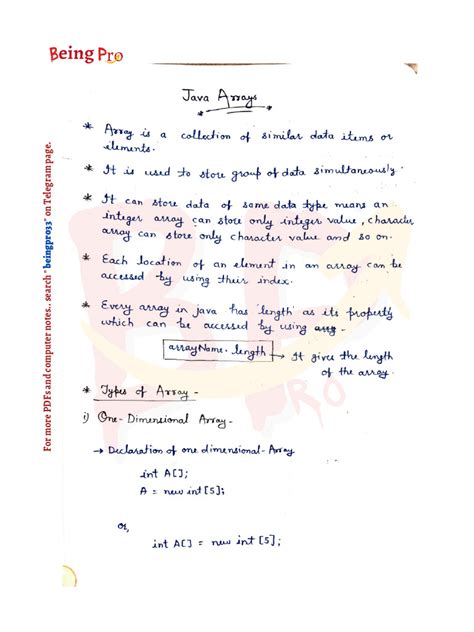 Being Pro
Java Arrays
* Array is a collection of similar data items or
elements.
* It is used to store group of data simultaneously.
* It can store data of same data type means an
integer array can store only integer value, character
array can store only character value and so on.
* Each location of an element in an array can be
accessed by using their index.
* Every array in java has length as its property
which can be accessed by using
arrayName.length → It gives the length
of the array.
* Types of Array -
i) One-Dimensional Array -
→ Declaration of one dimensional-Array
int A[];
A = new int [5];
Or,
int A[] = new int [5];
For more PDFs and computer notes.. search "beingpro33" on Telegram page.
BP
PRO